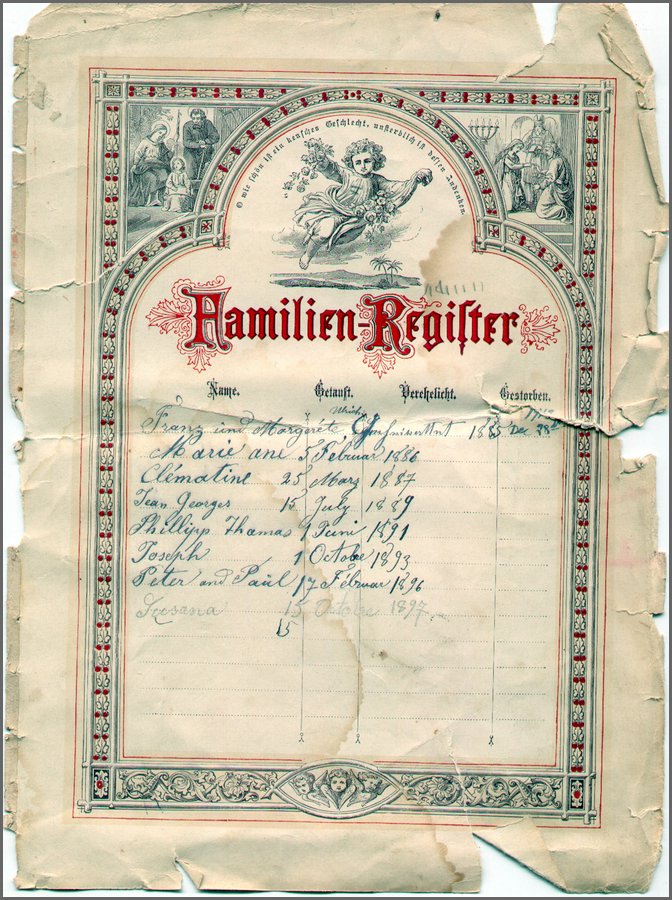 O wie schön ist ein keusches Geschlecht, unsterblich ist dessen Andenken.
Familien-Register
Name. Getauft. Verehelicht. Gestorben.
Franz und Margerete 1885 Dec 28
Marie ane 5 Februar 1886
Clématine 25 Marz 1887
Jean Georges 15 July 1889
Phillipp Thomas 1 Juni 1891
Joseph 1 Octobe 1893
Peter and Paul 17 Februar 1896
15 Octobre 1897
15